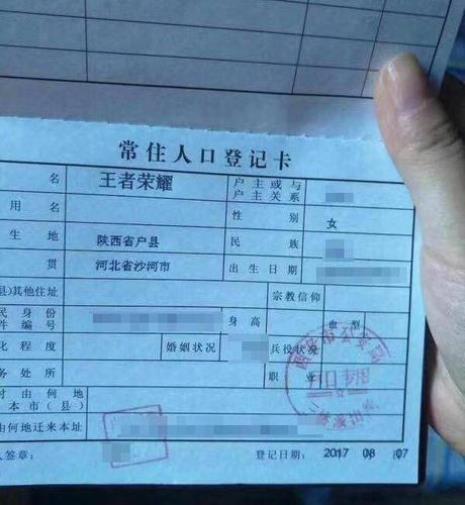 常住人口登记卡
名 王者荣耀 户主或与户主关系
用名 性别 女
生地 陕西省户县 民族
贯 河北省沙河市 出生日期
县)其他住址 宗教信仰
民身份件编号 身高 血型
化程度 婚姻状况 兵役状况
务处所 职业
时由何地本市(县)
由何地迁来本址
人签章: 登记日期: 2017 08 07
户口专用